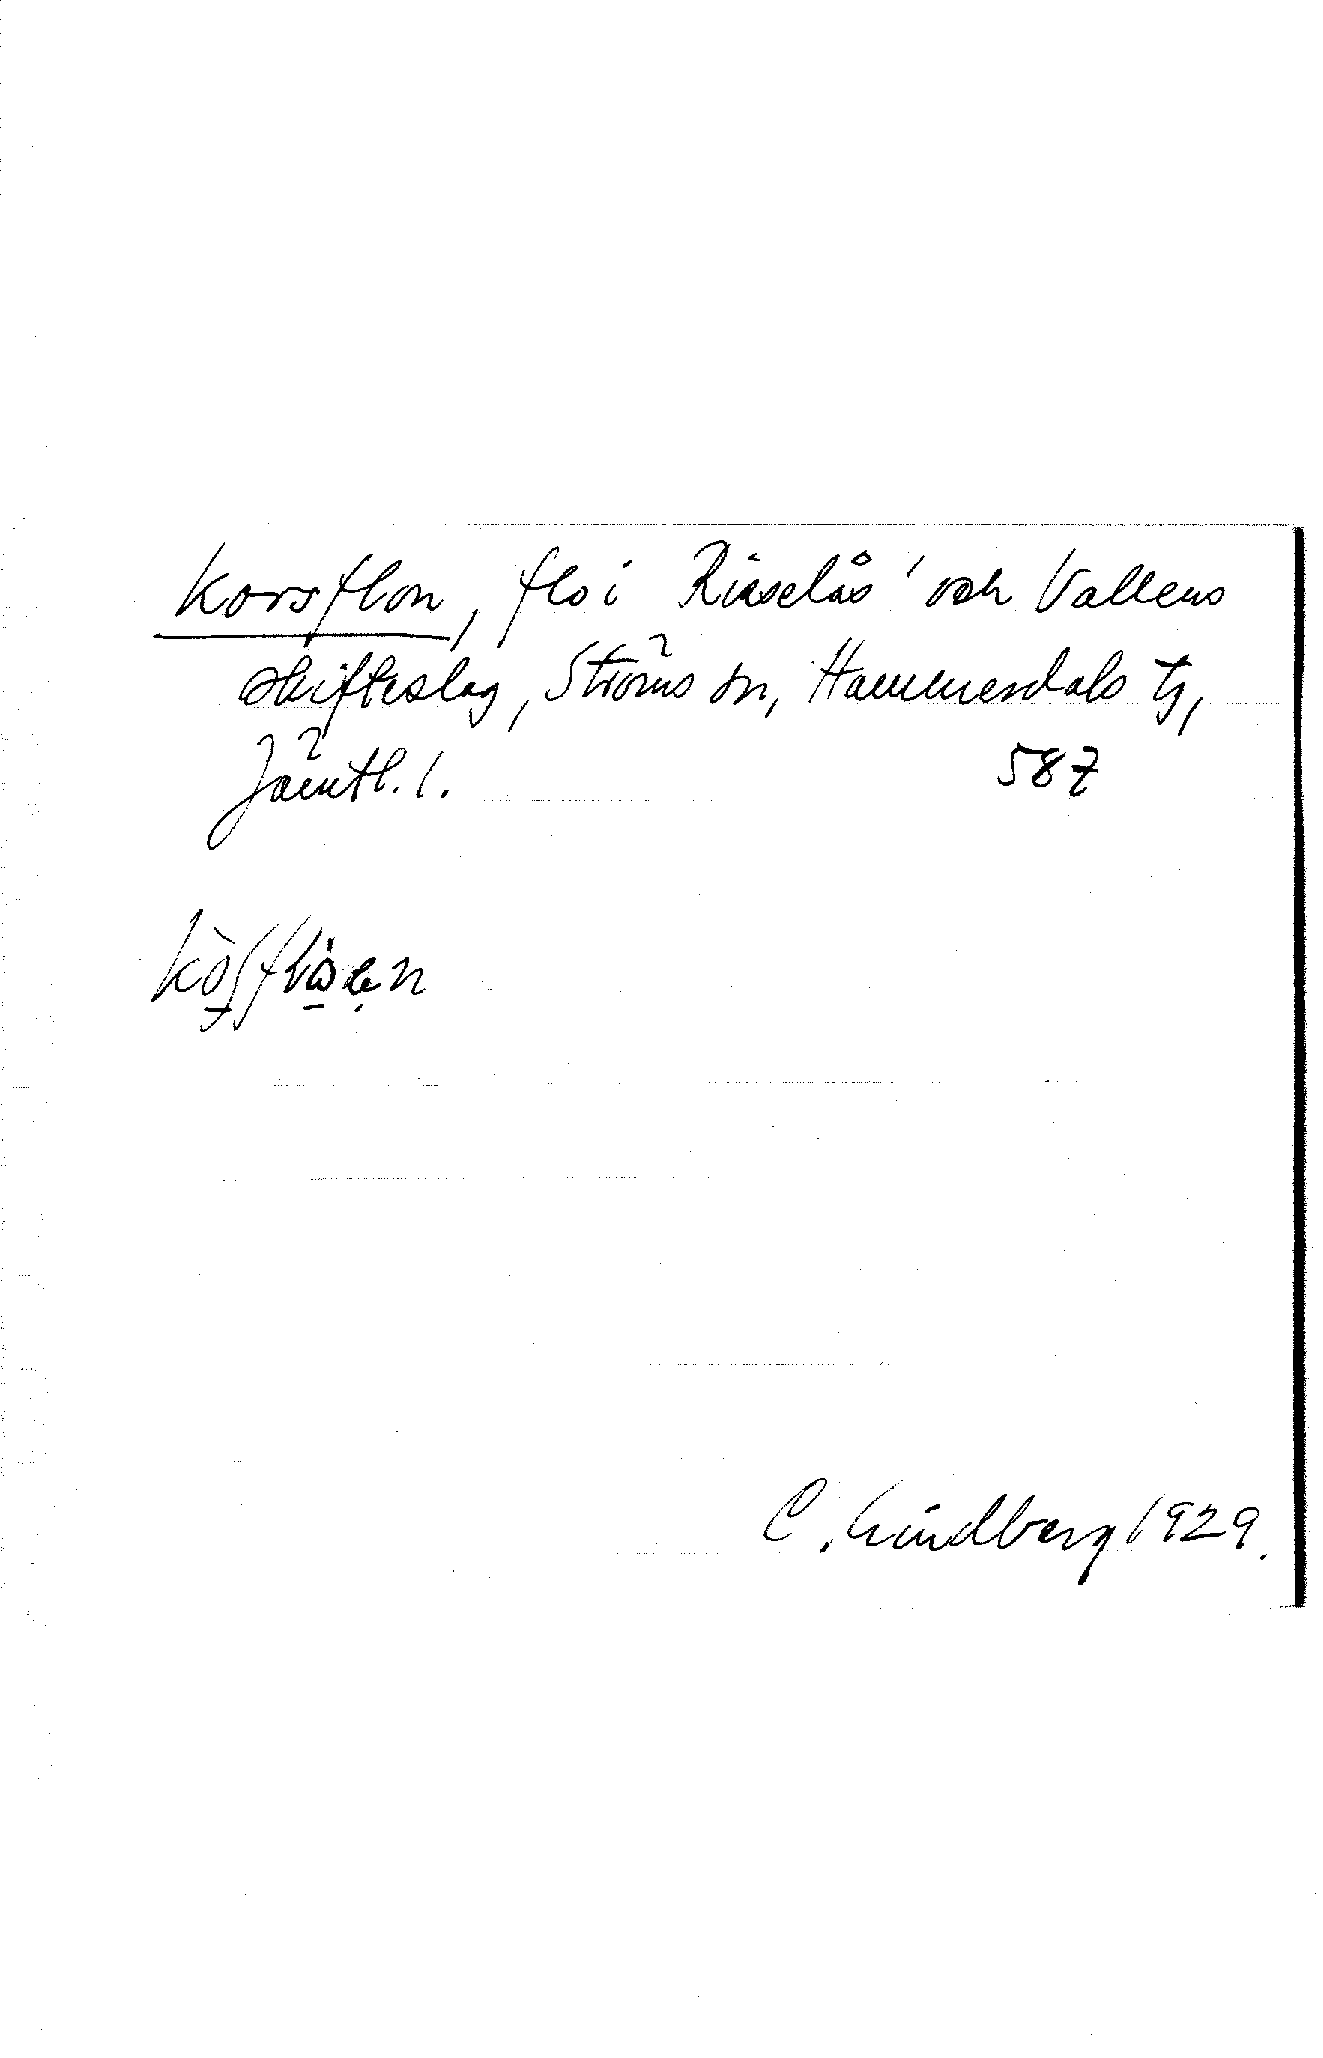 Korsflon, flo i Risselås och Vallens
skifteslag, Ströms sn, Hammerdals tg,
Jämtl. l. 587
C. Lindberg 1929.